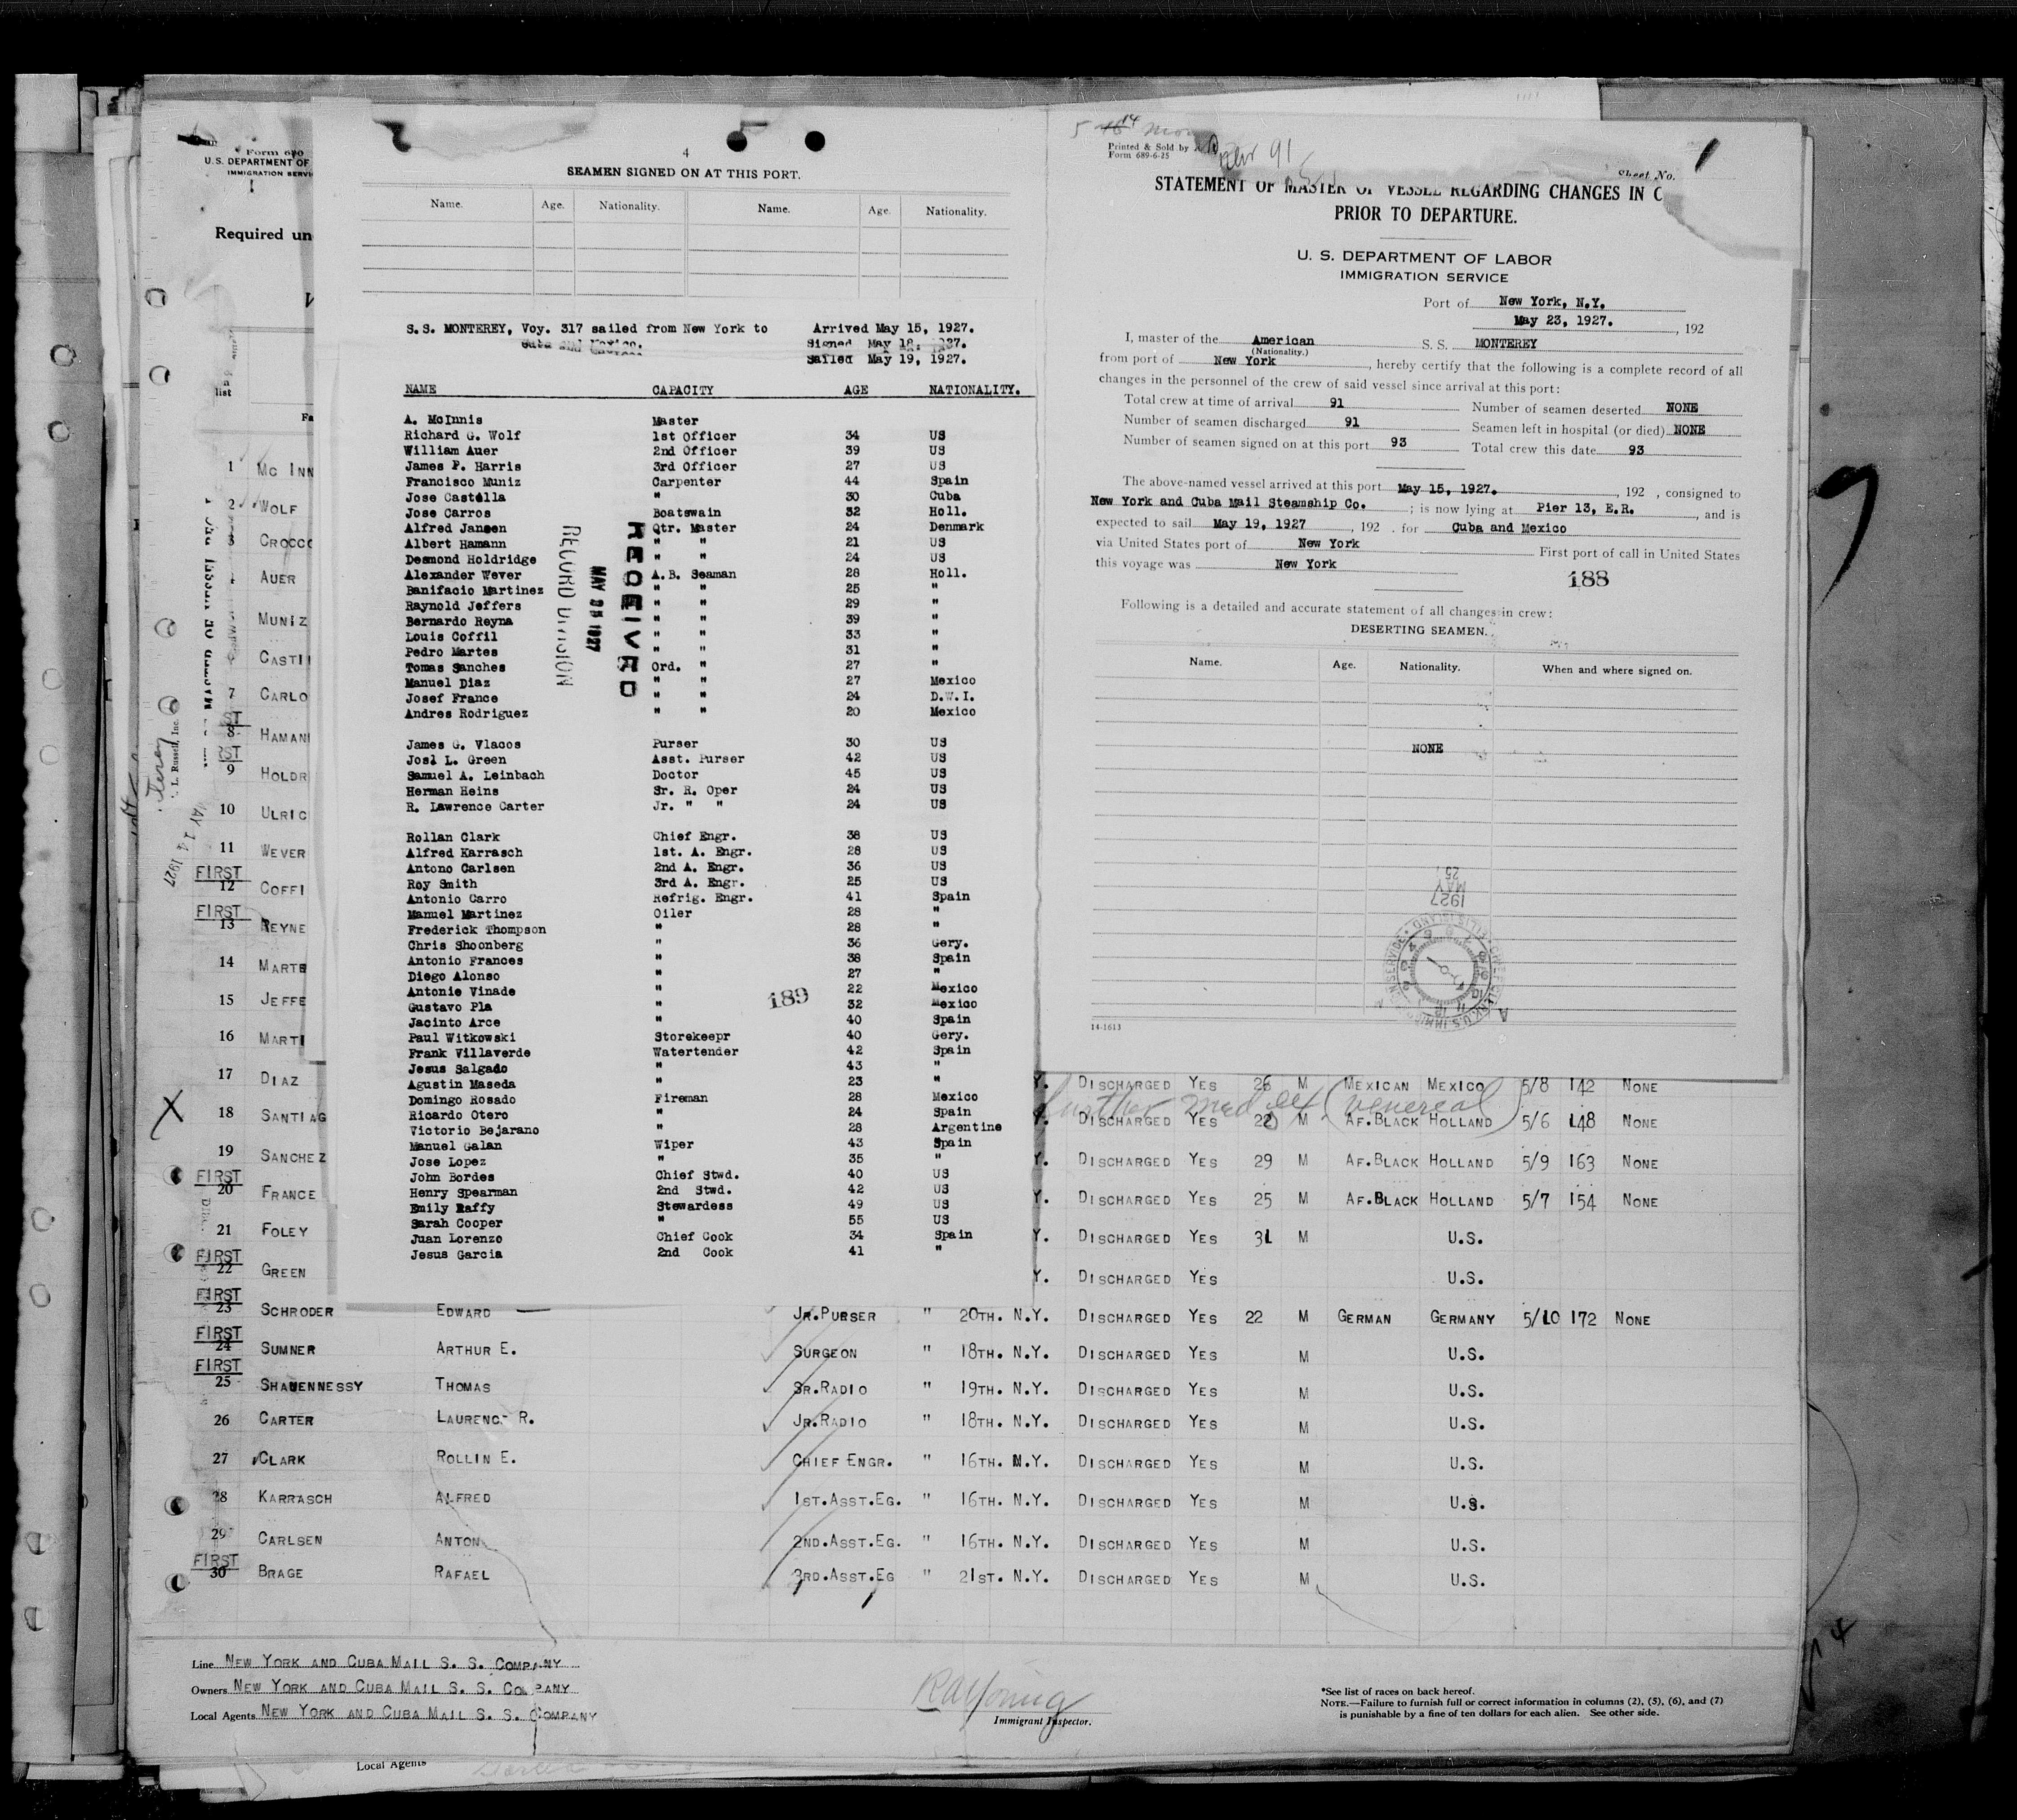 Form 680
U.S. DEPARTMENT OF
IMMIGRATION SERVI
Required un
list
Fa
4
SEAMEN SIGNED ON AT THIS PORT.
Name. Age. Nationality. Name. Age. Nationality.
S.S. MONTEREY, Voy. 317 sailed from New York to Arrived May 15, 1927.
Cuba and Mexico. Signed May 18, 1927.
Sailed May 19, 1927.
NAME CAPACITY AGE NATIONALITY.
A. McInnis Master
Richard G. Wolf 1st Officer 34 US
William Auer 2nd Officer 39 US
James P. Harris 3rd Officer 27 US
Francisco Muniz Carpenter 44 Spain
Jose Castella " 30 Cuba
Jose Carros Boatswain 32 Holl.
Alfred Jansen Qtr. Master 24 Denmark
Albert Hamann " " 21 US
Desmond Holdridge " " 24 US
Alexander Wever A.B. Seaman 28 Holl.
Banifacio Martinez " " 25 "
Raynold Jeffers " " 29 "
Bernardo Reyna " " 39 "
Louis Coffil " " 33 "
Pedro Martes " " 31 "
Tomas Sanches Ord. " 27 "
Manuel Diaz " " 27 Mexico
Josef France " " 24 D.W.I.
Andres Rodriguez " " 20 Mexico
James G. Vlacos Purser 30 US
Josl L. Green Asst. Purser 42 US
Samuel A. Leinbach Doctor 45 US
Herman Heins Sr. R. Oper 24 US
R. Lawrence Carter Jr. " " 24 US
Rollan Clark Chief Engr. 38 US
Alfred Karrasch 1st. A. Engr. 28 US
Antono Carlsen 2nd A. Engr. 36 US
Roy Smith 3rd A. Engr. 25 US
Antonio Carro Refrig. Engr. 41 Spain
Manuel Martinez Oiler 28 "
Frederick Thompson " 28 "
Chris Shoonberg " 36 Gery.
Antonio Frances " 38 Spain
Diego Alonso " 27 "
Antonie Vinade " 22 Mexico
Gustavo Pla " 32 Mexico
Jacinto Arce " 40 Spain
Paul Witkowski Storekeepr 40 Gery.
Frank Villaverde Watertender 42 Spain
Jesus Salgado " 43 "
Agustin Maseda " 23 "
Domingo Rosado Fireman 28 Mexico
Ricardo Otero " 24 Spain
Victorio Bejarano " 28 Argentine
Manuel Galan Wiper 43 Spain
Jose Lopez " 35 "
John Bordes Chief Stwd. 40 US
Henry Spearman 2nd Stwd. 42 US
Emily Raffy Stewardess 49 US
Sarah Cooper " 55 US
Juan Lorenzo Chief Cook 34 Spain
Jesus Garcia 2nd Cook 41 "
RECEIVED
MAY 25 1927
RECORD DIVISION
189
Printed & Sold by
Form 689-6-25
91
Sheet No.
1
STATEMENT OF MASTER OF VESSEL REGARDING CHANGES IN C
PRIOR TO DEPARTURE.
U. S. DEPARTMENT OF LABOR
IMMIGRATION SERVICE
Port of New York, N.Y.
May 23, 1927. , 192
I, master of the American S. S. MONTEREY
(Nationality.)
from port of New York , hereby certify that the following is a complete record of all
changes in the personnel of the crew of said vessel since arrival at this port:
Total crew at time of arrival 91 Number of seamen deserted NONE
Number of seamen discharged 91 Seamen left in hospital (or died) NONE
Number of seamen signed on at this port 93 Total crew this date 93
The above-named vessel arrived at this port May 15, 1927. , 192 , consigned to
New York and Cuba Mail Steamship Co. ; is now lying at Pier 13, E.R. , and is
expected to sail May 19, 1927 , 192 . for Cuba and Mexico
via United States port of New York First port of call in United States
this voyage was New York
188
Following is a detailed and accurate statement of all changes in crew:
DESERTING SEAMEN.
Name. Age. Nationality. When and where signed on.
NONE
1927
MAY
25
14-1613
1 MC INN
2 WOLF
3 CROCCO
4 AUER
5 MUNIZ
6 CASTI
7 CARLO
8 HAMAN
9 HOLDR
10 ULRIC
11 WEVER
FIRST
12 COFFI
FIRST
13 REYNE
14 MARTE
15 JEFFE
16 MARTI
MAY 14 1927
17 DIAZ Y. DISCHARGED YES 26 M MEXICAN MEXICO 5/8 142 NONE
further med ex (venereal)
X 18 SANTIAG Y. DISCHARGED YES 22 M AF.BLACK HOLLAND 5/6 148 NONE
19 SANCHEZ Y. DISCHARGED YES 29 M AF.BLACK HOLLAND 5/9 163 NONE
FIRST
20 FRANCE Y. DISCHARGED YES 25 M AF.BLACK HOLLAND 5/7 154 NONE
21 FOLEY Y. DISCHARGED YES 31 M U.S.
FIRST
22 GREEN Y. DISCHARGED YES U.S.
FIRST
23 SCHRODER EDWARD JR.PURSER " 20TH. N.Y. DISCHARGED YES 22 M GERMAN GERMANY 5/10 172 NONE
FIRST
24 SUMNER ARTHUR E. SURGEON " 18TH. N.Y. DISCHARGED YES M U.S.
FIRST
25 SHAUENNESSY THOMAS SR.RADIO " 19TH. N.Y. DISCHARGED YES M U.S.
26 CARTER LAURENC- R. JR.RADIO " 18TH. N.Y. DISCHARGED YES M U.S.
27 CLARK ROLLIN E. CHIEF ENGR. " 16TH. N.Y. DISCHARGED YES M U.S.
28 KARRASCH ALFRED 1ST.ASST.EG. " 16TH. N.Y. DISCHARGED YES M U.S.
29 CARLSEN ANTON 2ND.ASST.EG. " 16TH. N.Y. DISCHARGED YES M U.S.
FIRST
30 BRAGE RAFAEL 3RD.ASST.EG " 21ST. N.Y. DISCHARGED YES M U.S.
Line NEW YORK AND CUBA MAIL S. S. COMPANY
Owners NEW YORK AND CUBA MAIL S. S. COMPANY
Local Agents NEW YORK AND CUBA MAIL S. S. COMPANY
Immigrant Inspector.
*See list of races on back hereof.
NOTE.—Failure to furnish full or correct information in columns (2), (5), (6), and (7)
is punishable by a fine of ten dollars for each alien. See other side.
Local Agents